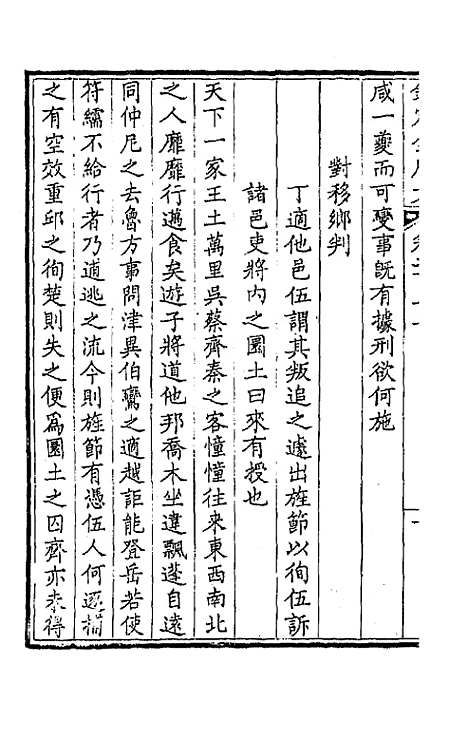 咸一夔而可變事既有據刑欲何施
對移鄉判
丁適他邑伍謂其叛追之遽出旌節以徇伍訴
諸邑吏將内之圜土曰來有授也
天下一家王土萬里吳蔡齊秦之客憧憧往來東西南北
之人靡靡行邁食矣遊子將道他邦喬木坐違飄蓬自遠
同仲尼之去魯方事問津異伯鸞之適越詎能登岳若使
符繻不給行者乃逋逃之流今則旌節有憑伍人何逐搊
之有空效重邱之徇楚則失之便為圜土之囚齊亦未得